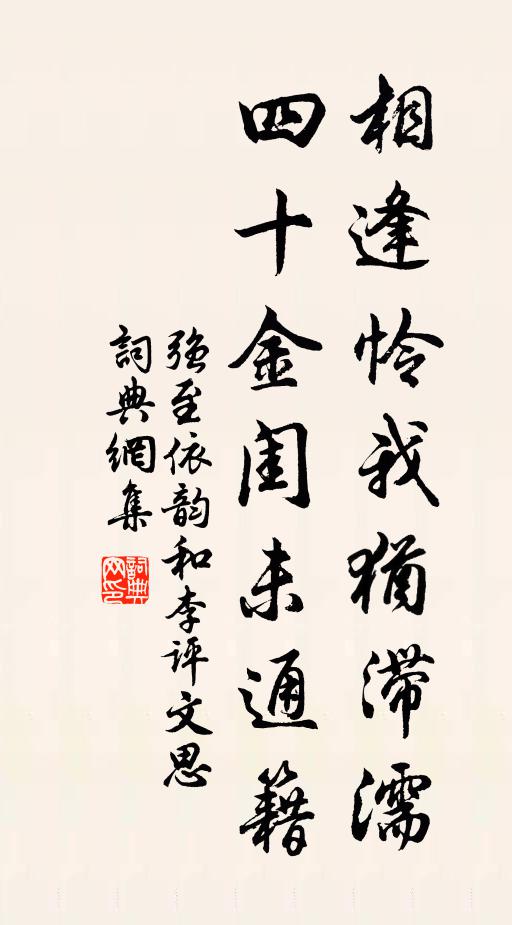 相逢怜我犹滞濡
四十金闺未通籍
强至依韵和李评文思
詞典網集
詞典网印